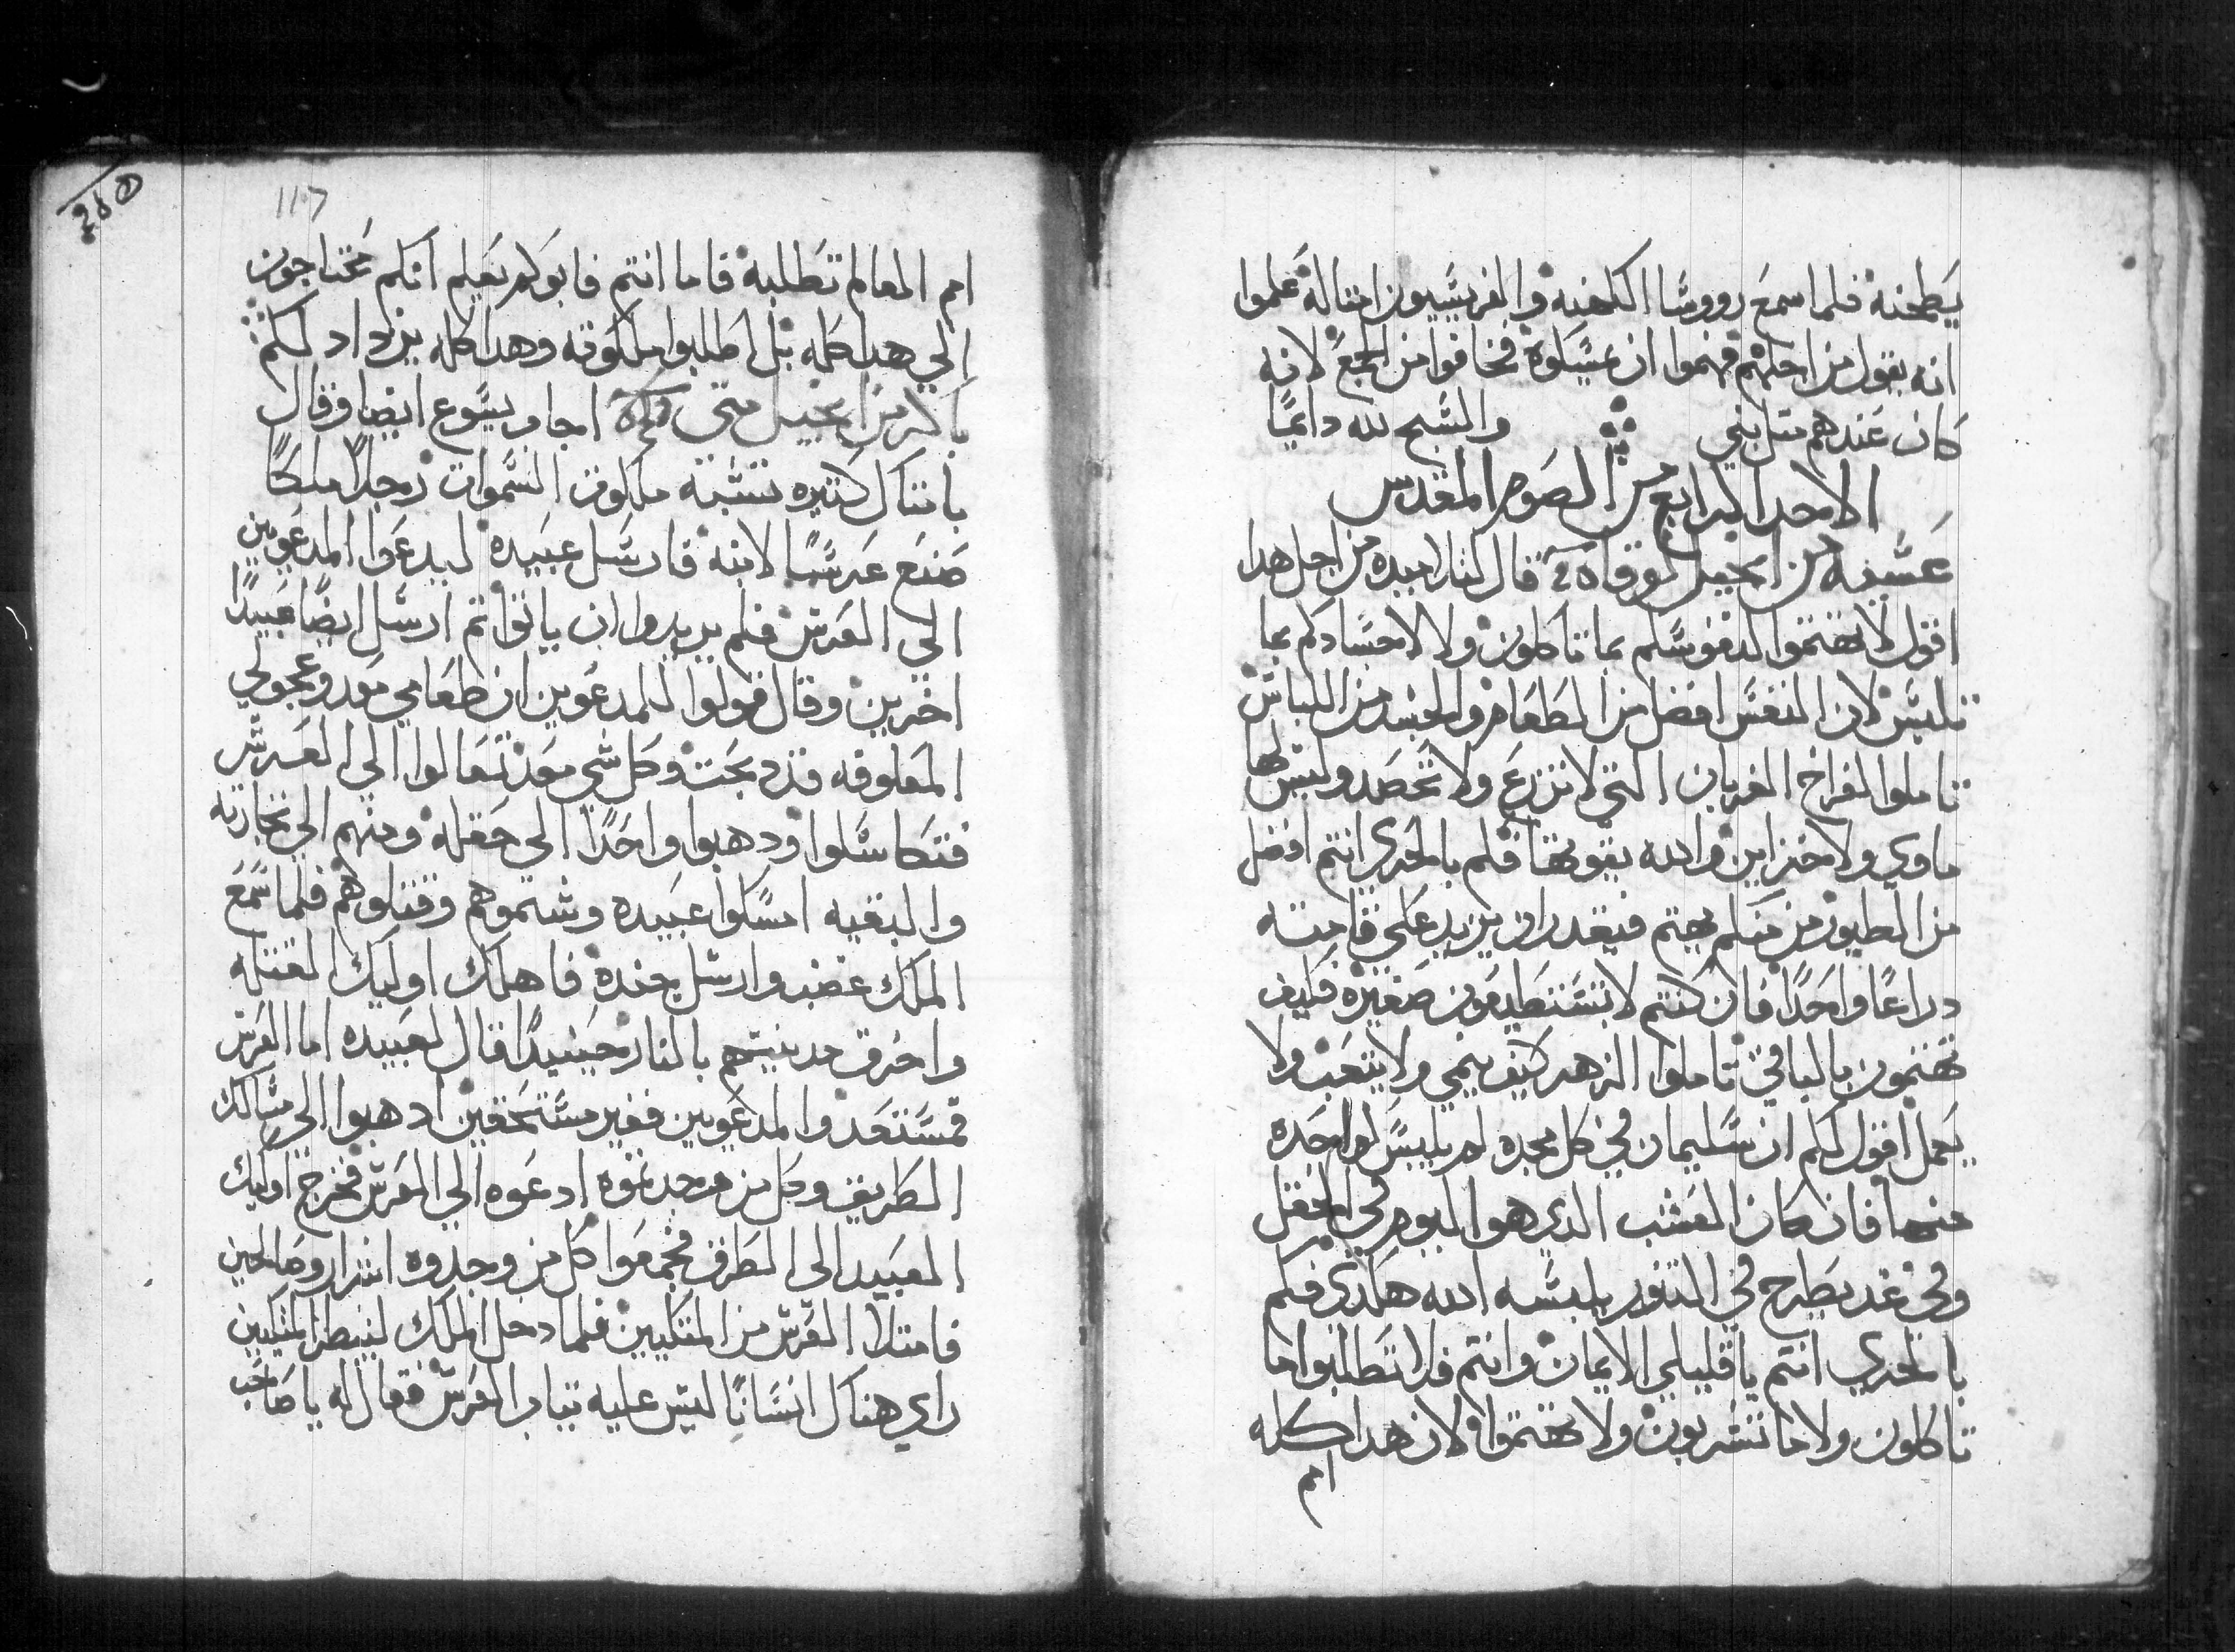 يطحنه فلما سمع رووسا الكهنه والفريسيون امتاله علموا
انه يقول من اجلهم فهموا ان يمسكوه فخافوا من الجمع لانه
كان عندهم متل نبي والسبح لله دايمًا
الاحد الرابع من الصوم المقدس
عشية من انجيل لوقا قال لتلاميده من اجل هدا
اقول لا تهتموا لنفوسكم بما تاكلون ولا لاجسادكم بما
تلبس لان النفس افضل من الطعام والجسد من اللباس
تاملوا لفراخ الغربان التي لا تزرع ولا تحصد وليس لها
ماوي ولا مخزاين والله يقوتها فكم بالحري انتم افضل
من الطيور من منكم يهتم فيقدر ان يزيد علي قامته
دراعًا واحدًا فان كنتم لا تستطيعون صغيره فكيف
تهتمون بالباقي تاملوا الزهر كيف ينمي ولا يتعب ولا
يعمل اقول لكم ان سليمان في كل مجده لم يلبس كواحده
منها فان كان العشب الدي هو اليوم في الحقل
وفي غد يطرح في التنور يلبسه الله هكدي فكم
بالحري انتم يا قليلي الايمان وانتم فلا تطلبوا ما
تاكلون ولا ما تشربون ولا تهتموا لان هدا كله
امم
117
امم العالم تطلبه فاما انتم فابوكم يعلم انكم محتاجون
الي هدا كله بل اطلبوا ملكوته وهدا كله يزداد لكم
باكر من انجيل متي اجاب يسوع ايضا وقال
بامتال كتيره تشبه ملكوت السموات رجلًا ملكًا
صنع عرسًا لابنه فارسل عبيده ليدعوا المدعوين
الي العرس فلم يريدوا ان ياتوا تم ارسل ايضًا عبيدًا
اخرين وقال قولوا للمدعوين ان طعامي معد وعجولي
المعلوفه قد دبحت وكل شي معد تعالوا الي العرس
فتكاسلوا ودهبوا واحدًا الي حقله ومنهم الي تجارته
والبقيه امسكوا عبيده وشتموهم وقتلوهم فلما سمع
الملك غضب وارسل جنده فاهلك اوليك القتله
واحرق مدينتهم بالنار حينيدًا قال لعبيده اما العرس
فمستعد والمدعوين فغير مستحقين ادهبوا الي مسالك
الطريق وكل من وجدتموه ادعوه الي العرس فخرج اوليك
العبيد الى الطرق فجمعوا كل من وجدوه اشرار وصالحين
فامتلا العرس من المتكيين فلما دخل الملك لينظر المتكيين
راي هناك انسانًا ليس عليه تياب العرس فقال له يا صاحب